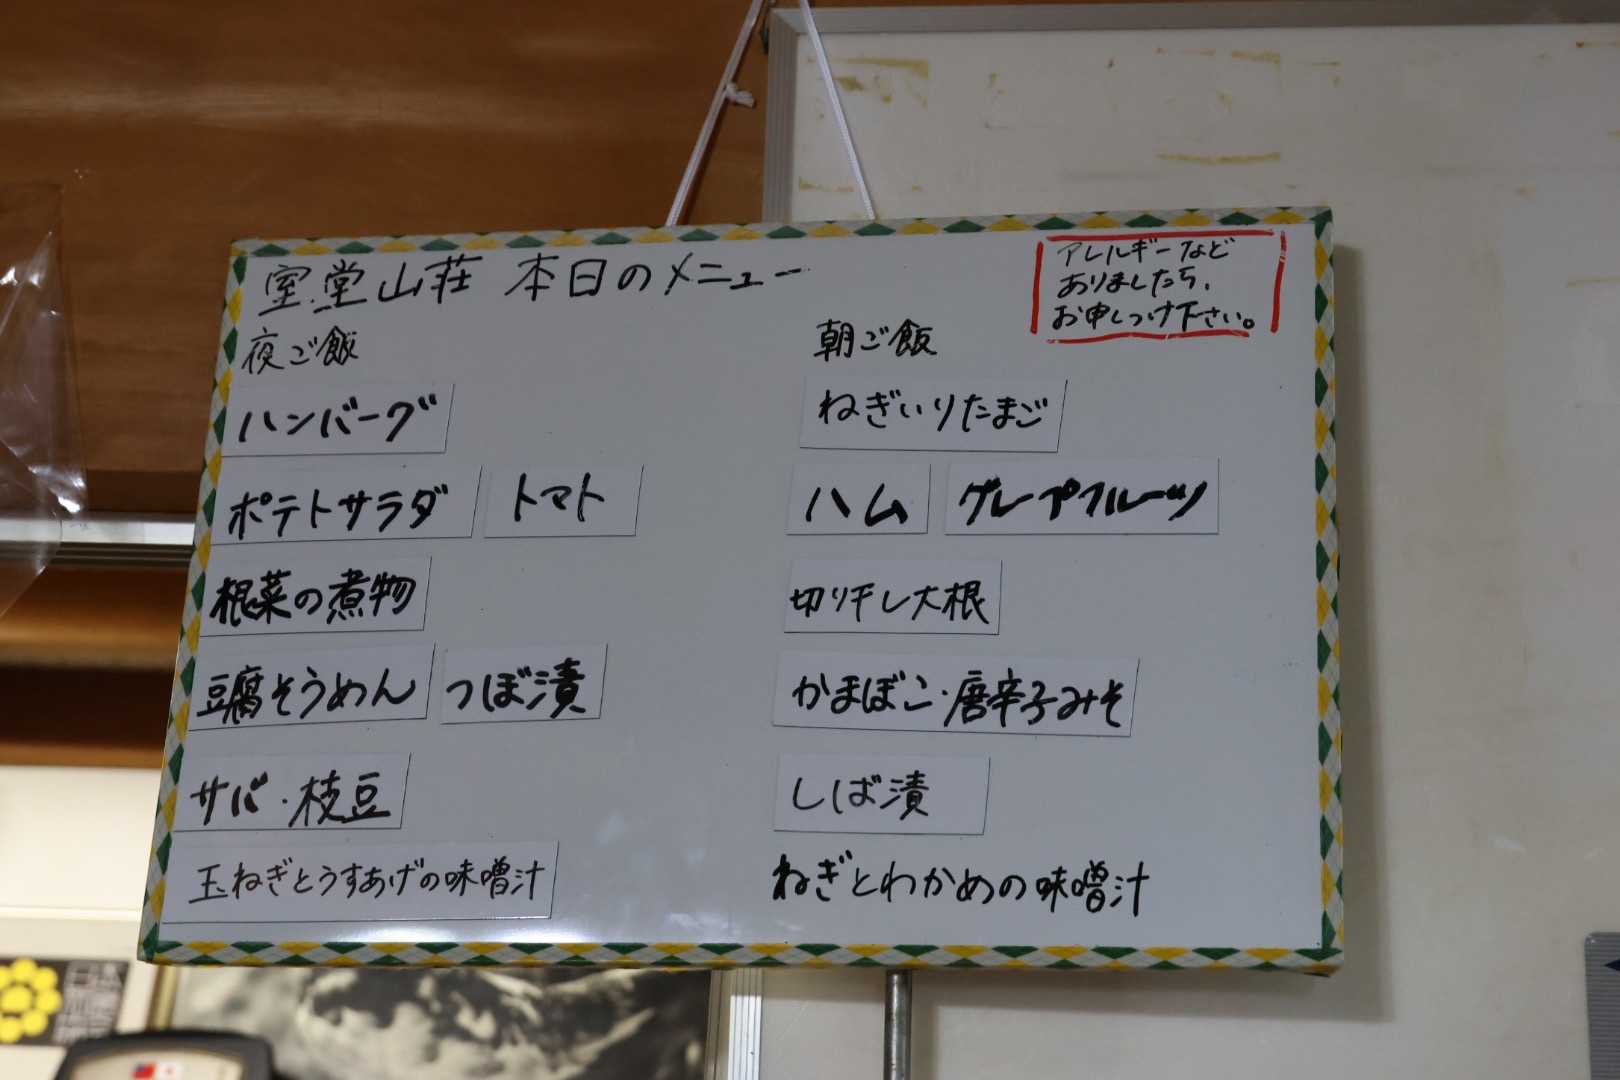 室堂山荘 本日のメニュー
アレルギーなど
ありましたら、
お申しつけ下さい。
夜ご飯
ハンバーグ
ポテトサラダ トマト
根菜の煮物
豆腐そうめん つぼ漬
サバ・枝豆
玉ねぎとうすあげの味噌汁
朝ご飯
ねぎいりたまご
ハム グレープフルーツ
切り干し大根
かまぼこ・唐辛子みそ
しば漬
ねぎとわかめの味噌汁